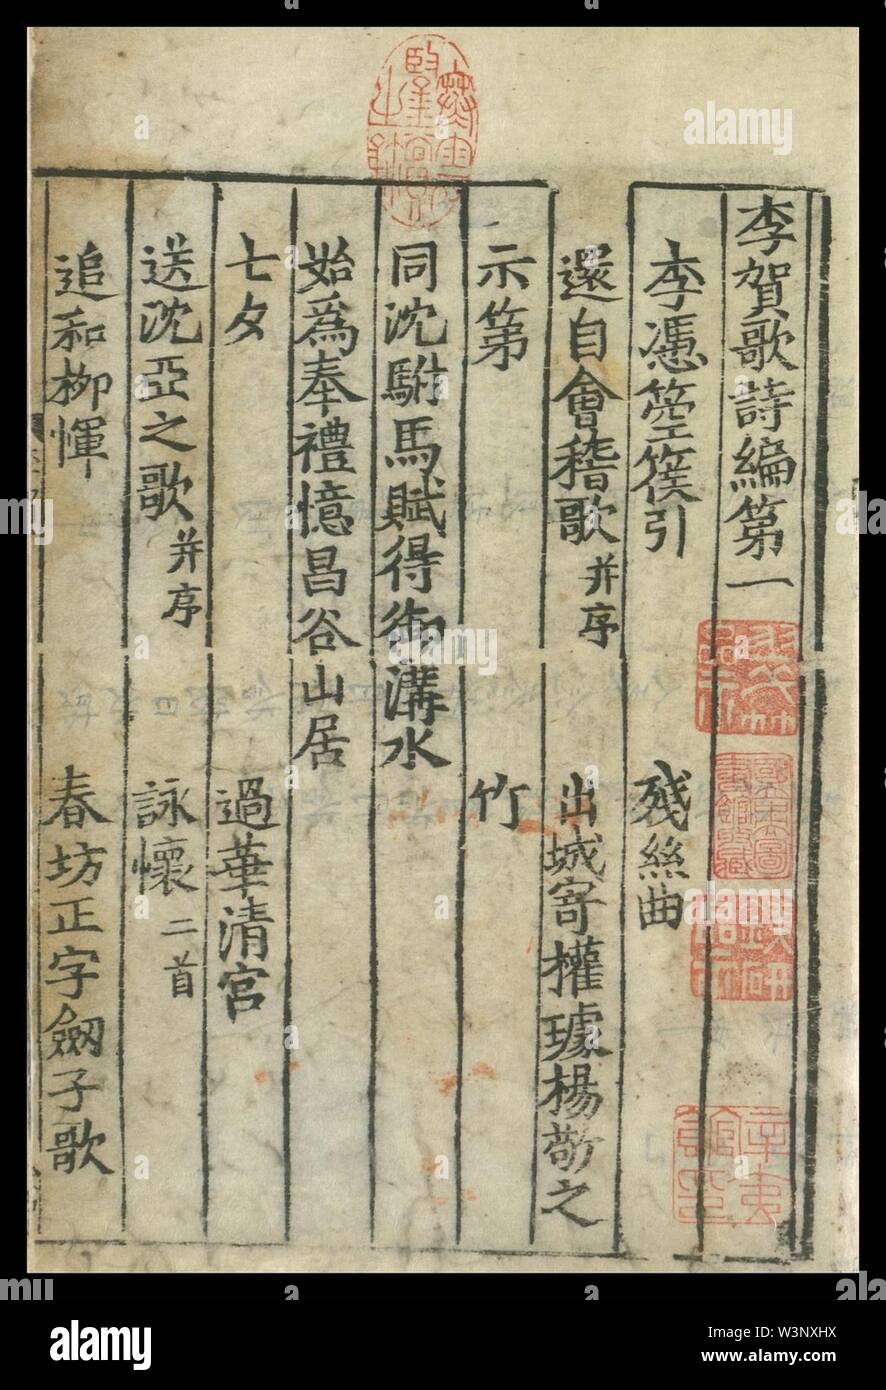 李賀歌詩編第一
李憑箜篌引 殘絲曲
還自會稽歌 并序 出城寄權璩楊敬之
示第 竹
同沈駙馬賦得御溝水
始爲奉禮憶昌谷山居
七夕 過華清宮
送沈亞之歌 并序 詠懷 二首
追和柳惲 春坊正字劔子歌
alamy
Image ID: W3NXHX
www.alamy.com